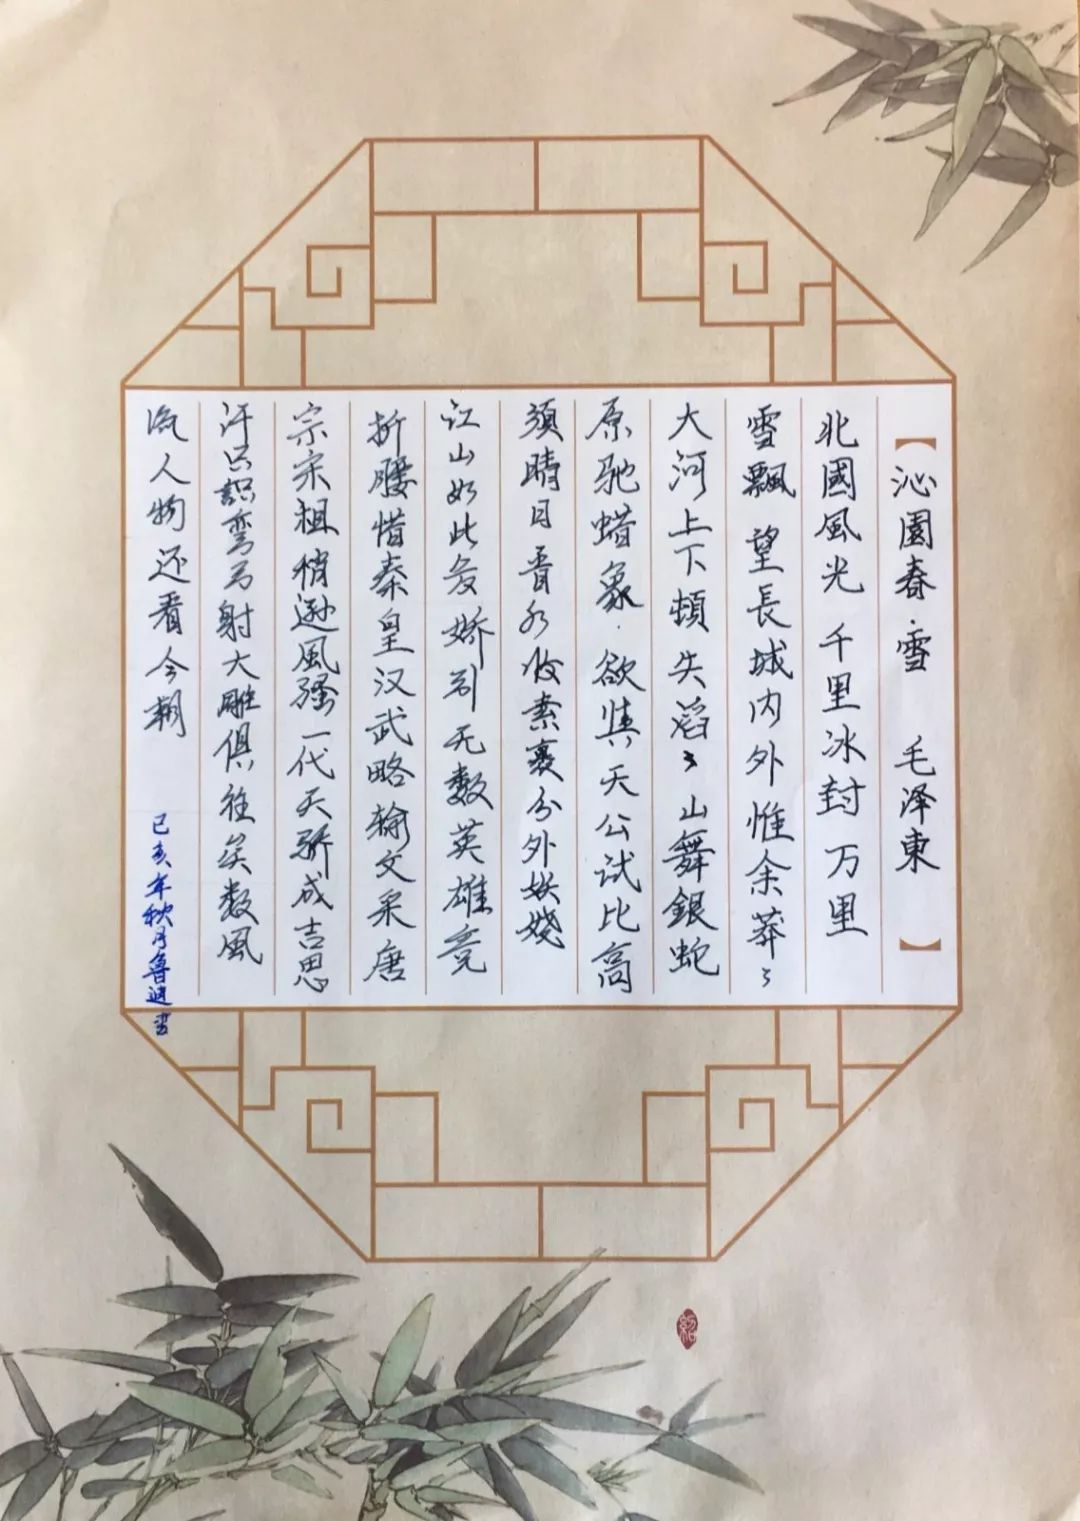 【沁園春·雪 毛泽東】
北國風光 千里冰封 万里
雪飄 望長城内外惟余莽々
大河上下頓失滔々山舞銀蛇
原驰蜡象·欲与天公试比高
須晴日看红收素裹分外妖娆
江山如此多娇引无数英雄竞
折腰惜秦皇汉武略输文采唐
宗宋祖稍逊風骚一代天骄成吉思
汗只識弯弓射大雕俱往矣数風
流人物还看今朝
己亥年秋月鲁迪书